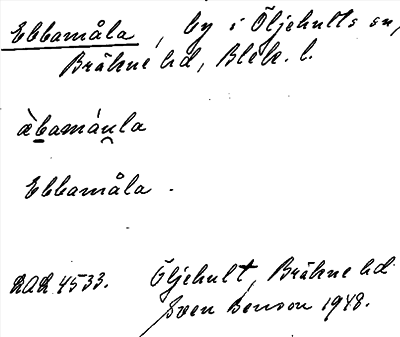 Ebbamåla, by i Öljehults sn,
Bräkne hd, Blek. l.
æ̀bamá̀u̯la
Ebbamåla.
RAÄ 4533. Öljehult, Bräkne hd
Sven Benson 1948.